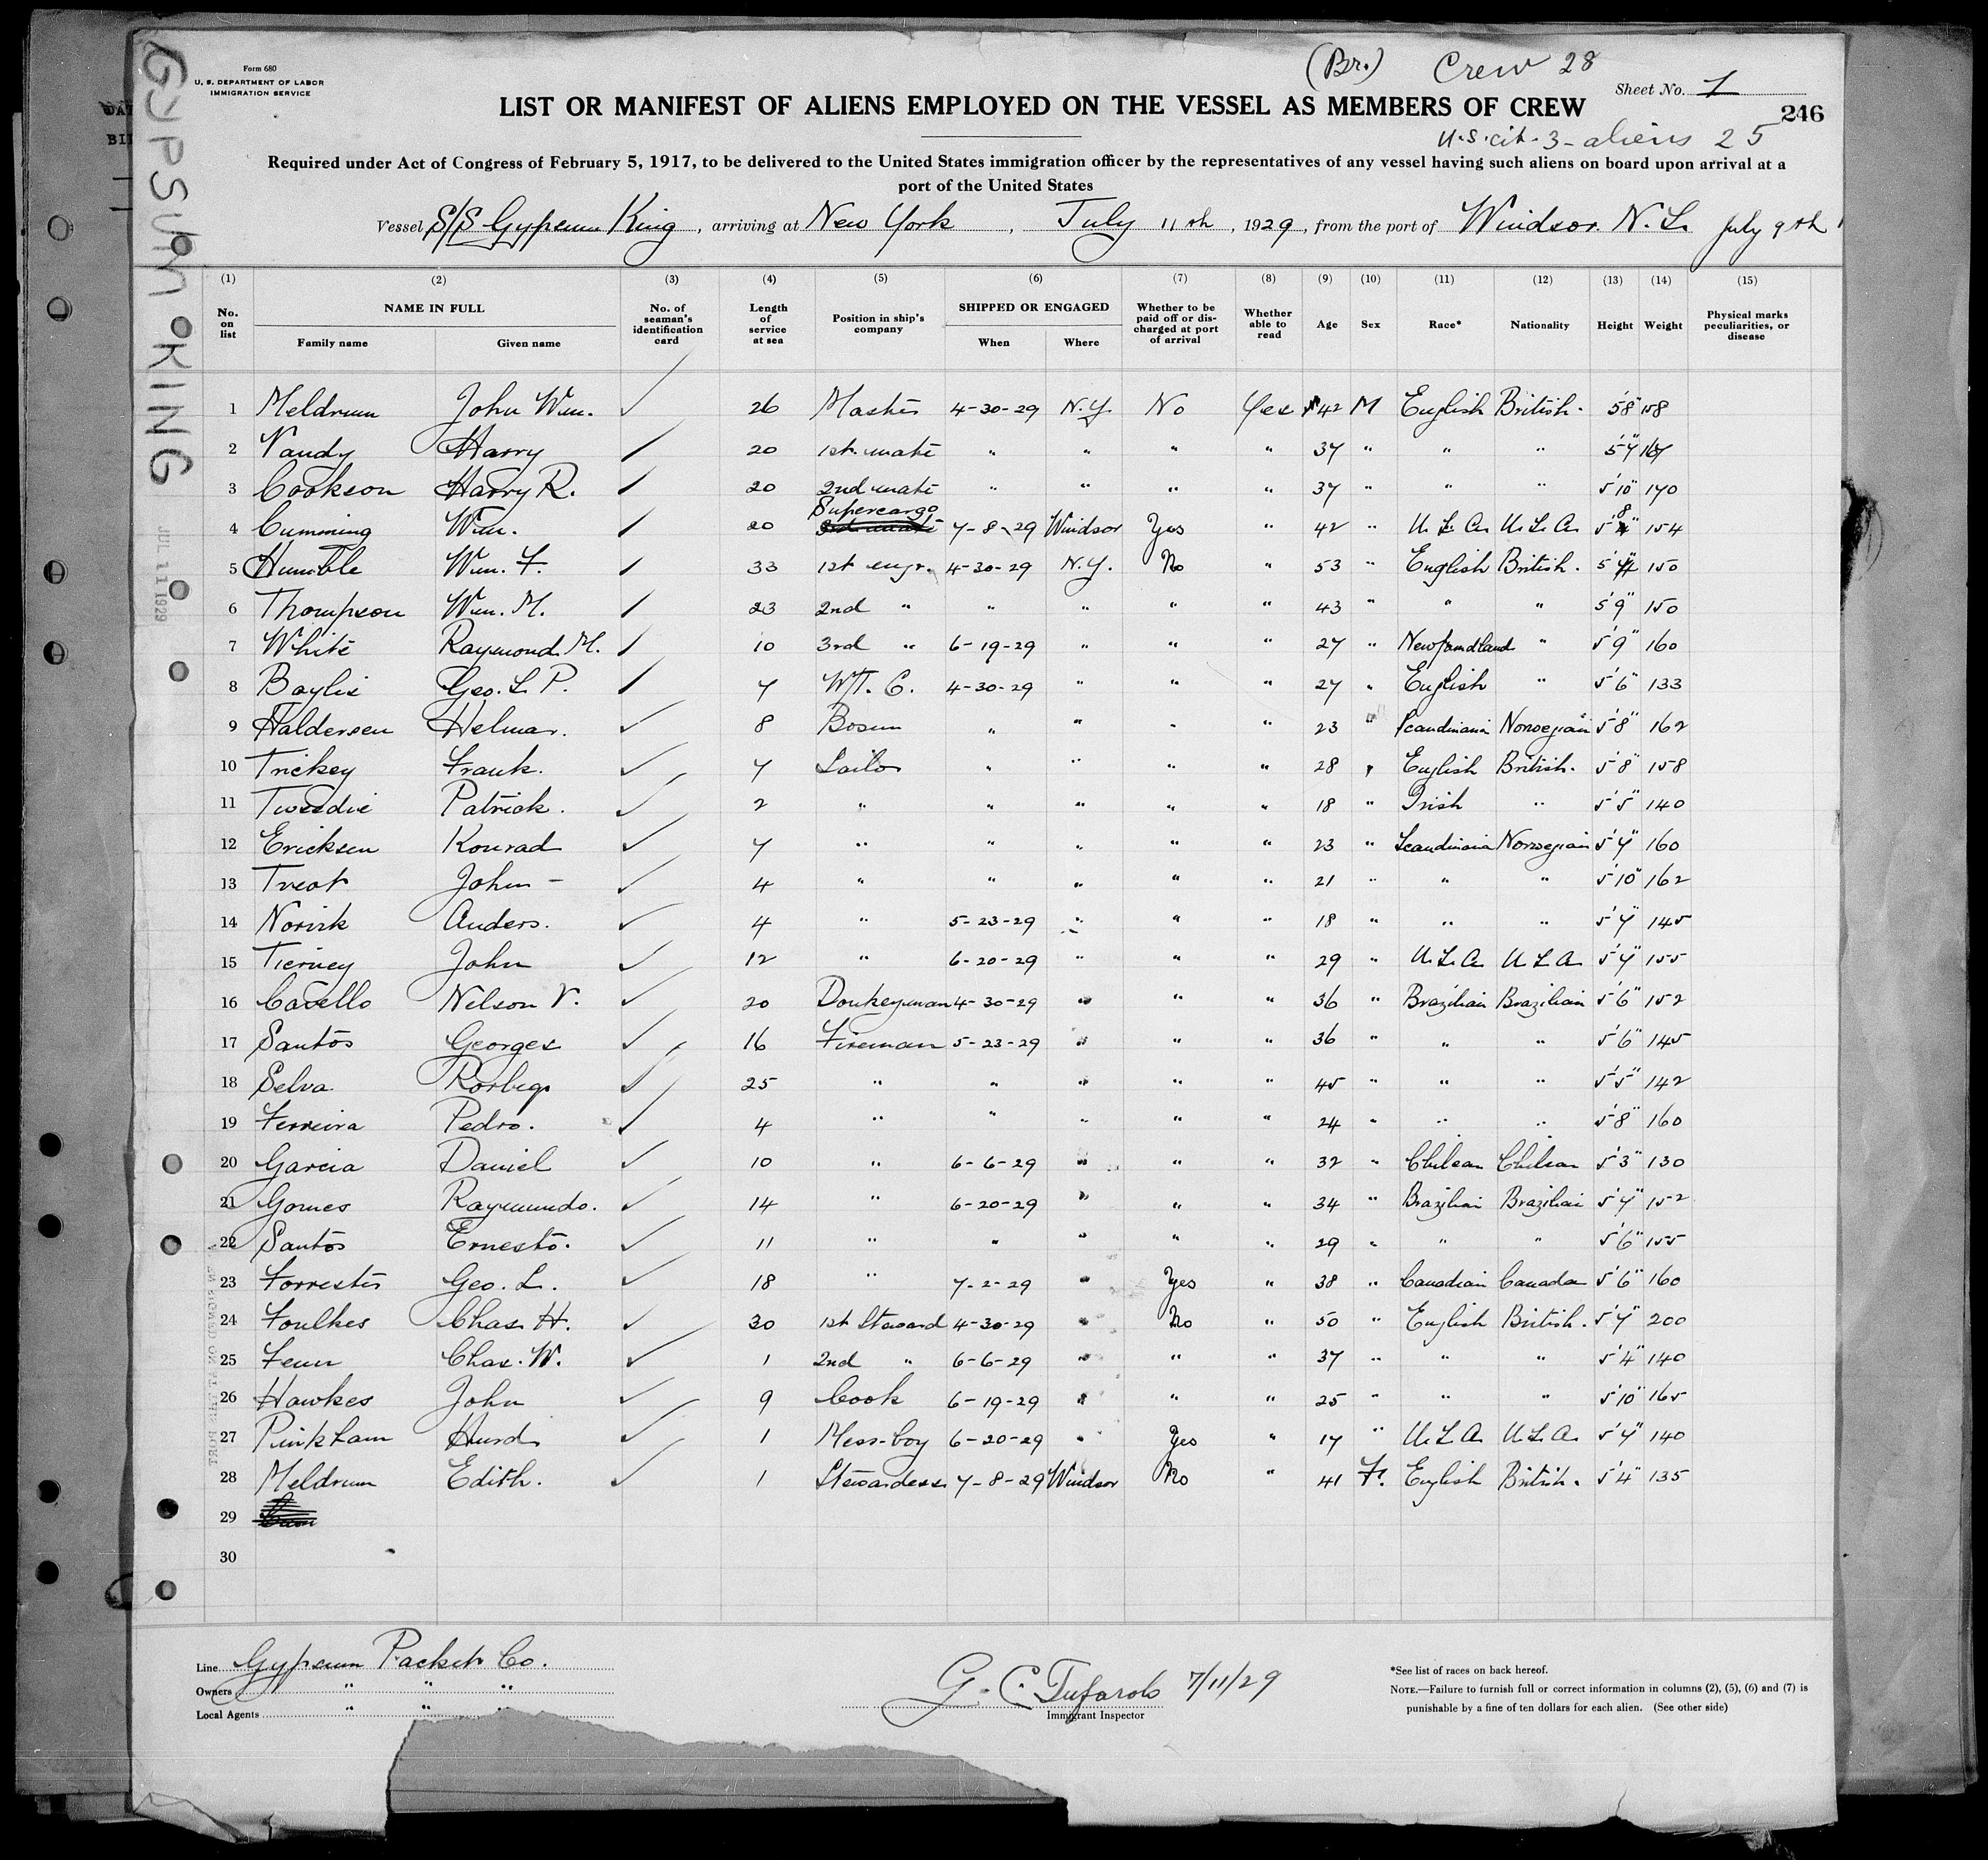 (Br.) Crew 28
Form 680
U. S. DEPARTMENT OF LABOR
IMMIGRATION SERVICE
Sheet No. 1
LIST OR MANIFEST OF ALIENS EMPLOYED ON THE VESSEL AS MEMBERS OF CREW
246
U.S. cit. 3 - aliens 25
Required under Act of Congress of February 5, 1917, to be delivered to the United States immigration officer by the representatives of any vessel having such aliens on board upon arrival at a
port of the United States
Vessel S/S Gypsum King, arriving at New York, July 11th, 1929, from the port of Windsor. N.S. July 9th
GYPSUM KING
JUL 11 1929
(1) (2) (3) (4) (5) (6) (7) (8) (9) (10) (11) (12) (13) (14) (15)
No. on list NAME IN FULL Family name Given name No. of seaman's identification card Length of service at sea Position in ship's company SHIPPED OR ENGAGED When Where Whether to be paid off or discharged at port of arrival Whether able to read Age Sex Race* Nationality Height Weight Physical marks peculiarities, or disease
1 Meldrum John Wm. ✓ 26 Master 4-30-29 N.Y. No Yes 42 M English British. 5'8" 158
2 Vandy Harry 20 1st. mate " " " " 37 " " " 5'7"
3 Cookson Harry R. 20 2nd mate " " " " 37 " " " 5'10" 170
4 Cumming Wm. 20 Supercargo 7-8-29 Windsor Yes " 42 " U.S.A. U.S.A. 5'8" 154
5 Humble Wm. F. 33 1st engr. 4-30-29 N.Y. No " 53 " English British. 150
6 Thompson Wm. M. 23 2nd " " " " " 43 " " " 5'9" 150
7 White Raymond. M. 10 3rd " 6-19-29 " " " 27 " Newfoundland " 5'9" 160
8 Baylis Geo. S. P. 7 W/T. O. 4-30-29 " " " 27 " English " 5'6" 133
9 Haldersen Helmar. ✓ 8 Bosun " " " " 23 " Scandinavia Norwegian 5'8" 162
10 Trickey Frank. ✓ 7 Sailor " " " " 28 " English British. 5'8" 158
11 Tweedie Patrick. ✓ 2 " " " " " 18 " Irish " 5'5" 140
12 Ericksen Konrad ✓ 7 " " " " " 23 " Scandinavia Norwegian 5'7" 160
13 Treot John - ✓ 4 " " " " " 21 " " " 5'10" 162
14 Norvik Anders. ✓ 4 " 5-23-29 " " " 18 " " " 5'7" 145
15 Tierney John ✓ 12 " 6-20-29 " " " 29 " U.S.A. U.S.A. 5'7" 155
16 Cacello Nelson V. ✓ 20 Donkeyman 4-30-29 " " " 36 " Brazilian Brazilian 5'6" 152
17 Santos Georges ✓ 16 Fireman 5-23-29 " " " 36 " " " 5'6" 145
18 Selva ✓ 25 " " " " " 45 " " " 5'5" 142
19 Ferreira Pedro. ✓ 4 " " " " " 24 " " " 5'8" 160
20 Garcia Daniel ✓ 10 " 6-6-29 " " " 32 " Chilean Chilean 5'3" 130
21 Gomes Raymundo. ✓ 14 " 6-20-29 " " " 34 " Brazilian Brazilian 5'7" 152
22 Santos Ernesto. ✓ 11 " " " " " 29 " " " 5'6" 155
23 Forrester Geo. L. ✓ 18 " 7-2-29 " Yes " 38 " Canadian Canada 5'6" 160
24 Foulkes Chas. H. ✓ 30 1st Steward 4-30-29 " No " 50 " English British. 5'7" 200
25 Fenn Chas. W. ✓ 1 2nd " 6-6-29 " " " 37 " " " 5'4" 140
26 Hawkes John ✓ 9 Cook 6-19-29 " " " 25 " " " 5'10" 165
27 Pinkham Hurd ✓ 1 Mess-boy 6-20-29 " Yes " 17 " U.S.A. U.S.A. 5'7" 140
28 Meldrum Edith. ✓ 1 Stewardess 7-8-29 Windsor No " 41 F. English British. 5'4" 135
29
30
Line Gypsum Packet Co.
Owners " " "
Local Agents " " "
G. C. Tufarolo 7/11/29
Immigrant Inspector
*See list of races on back hereof.
NOTE.—Failure to furnish full or correct information in columns (2), (5), (6) and (7) is
punishable by a fine of ten dollars for each alien. (See other side)